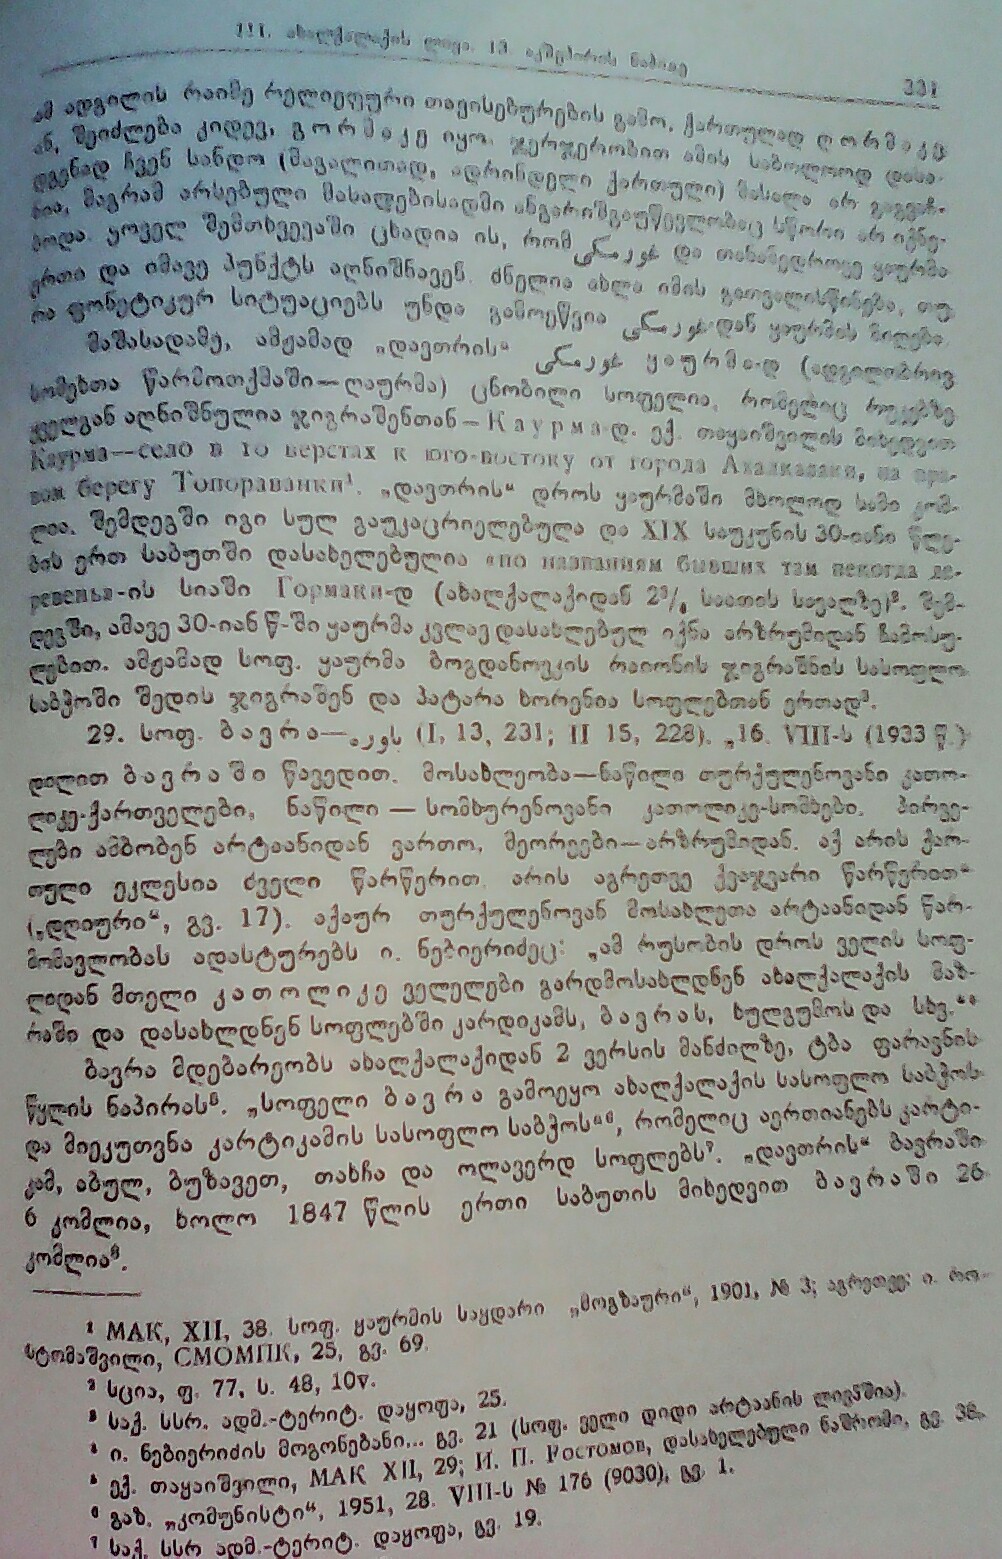 III. ახალქალაქის ლივა. 13. აკშეჰირის ნაჰიიე
331
ამ ადგილის რაიმე რელიეფური თავისებურების გამო, ქართულად ღორმაკე
ან, შეიძლება კიდევ, გორმაკე იყო. ჯერჯერობით ამის საბოლოოდ დასა-
დგენად ჩვენ სანდო (მაგალითად, ადრინდელი ქართული) მასალა არ გაგვაჩ-
ნია, მაგრამ არსებული მასალებისადმი ანგარიშგაუწევლობაც სწორი არ იქნე-
ბოდა. ყოველ შემთხვევაში ცხადია ის, რომ და თანამედროვე ყაურმა
ერთი და იმავე პუნქტს აღნიშნავენ. ძნელია ახლა იმის გათვალისწინება, თუ
რა ფონეტიკურ სიტუაციებს უნდა გამოეწვია -დან ყაურმის მიღება.
მაშასადამე, ამჟამად „დავთრის“ ყაურმა-დ (ადგილობრივ
სომეხთა წარმოთქმაში—ღაურმა) ცნობილი სოფელია, რომელიც რუკებზე
ყველგან აღნიშნულია ჯიგრაშენთან—Каурма-დ. ექ. თაყაიშვილის მიხედვით
Каурма—село в 10 верстах к юго-востоку от города Ахалкалаки, на пра-
вом берегу Топораванки¹. „დავთრის“ დროს ყაურმაში მხოლოდ სამი კომ-
ლია. შემდეგში იგი სულ გაუკაცრიელებულა და XIX საუკუნის 30-იანი წლე-
ბის ერთ საბუთში დასახელებულია «по названиям бывших там некогда де-
ревень»-ის სიაში Гормаки-დ (ახალქალაქიდან 2 საათის სავალზე)². შემ-
დეგში, ამავე 30-იან წ-ში ყაურმა კვლავ დასახლებულ იქნა არზრუმიდან ჩამოსუ-
ლებით. ამჟამად სოფ. ყაურმა ბოგდანოვკის რაიონის ჯიგრაშნის სასოფლო
საბჭოში შედის ჯიგრაშენ და პატარა ხორენია სოფლებთან ერთად³.
29. სოფ. ბავრა— (I, 13, 231; II 15, 228). „16. VIII-ს (1933 წ.)
დილით ბავრაში წავედით. მოსახლეობა—ნაწილი თურქულენოვანი კათო-
ლიკე-ქართველები, ნაწილი — სომხურენოვანი კათოლიკე-სომხები. პირვე-
ლები ამბობენ არტაანიდან ვართო, მეორეები—არზრუმიდან. აქ არის ქარ-
თული ეკლესია ძველი წარწერით, არის აგრეთვე ქვაჯვარი წარწერით“
(„დღიური“, გვ. 17). აქაურ თურქულენოვან მოსახლეთა არტაანიდან წარ-
მომავლობას ადასტურებს ი. ნებიერიძეც: „ამ რუსობის დროს ველის სოფ-
ლიდან მთელი კათოლიკე ველელები გარდმოსახლდნენ ახალქალაქის მაზ-
რაში და დასახლდნენ სოფლებში კარდიკამს, ბავრას, ხულგუმოს და სხვ.“⁴
ბავრა მდებარეობს ახალქალაქიდან 2 ვერსის მანძილზე, ტბა ფარავნის
წყლის ნაპირას⁵. „სოფელი ბავრა გამოეყო ახალქალაქის სასოფლო საბჭოს
და მიეკუთვნა კარტიკამის სასოფლო საბჭოს“⁶, რომელიც აერთიანებს კარტი-
კამ, აბულ, ბუზავეთ, თახჩა და ოლავერდ სოფლებს⁷. „დავთრის“ ბავრაში
6 კომლია, ხოლო 1847 წლის ერთი საბუთის მიხედვით ბავრაში 26
კომლია⁸.
¹ МАК, XII, 38. სოფ. ყაურმის საყდარი „მოგზაური“, 1901, № 3; აგრეთვე: ი. რო-
სტომაშვილი, СМОМПК, 25, გვ. 69.
² სცია, ფ. 77, ს. 48, 10v.
³ საქ. სსრ. ადმ.-ტერიტ. დაყოფა, 25.
⁴ ი. ნებიერიძის მოგონებანი... გვ. 21 (სოფ. ველი დიდი არტაანის ლივაშია).
⁵ ექ. თაყაიშვილი, МАК XII, 29; И. П. Ростомов, დასახელებული ნაშრომი, გვ. 38.
⁶ გაზ. „კომუნისტი“, 1951, 28. VIII-ს № 176 (9030), გვ. 1.
⁷ საქ. სსრ ადმ.-ტერიტ. დაყოფა, გვ. 19.